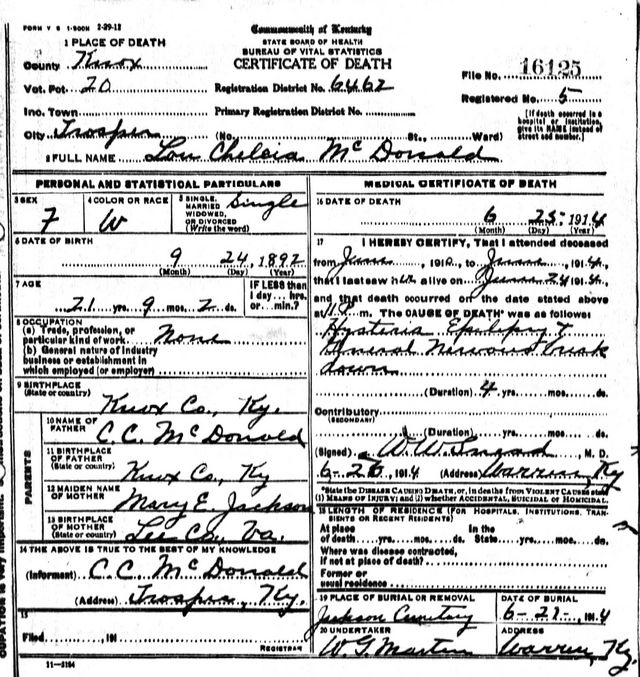 FORM V S 1-500M 2-29-12
Commonwealth of Kentucky
STATE BOARD OF HEALTH
BUREAU OF VITAL STATISTICS
CERTIFICATE OF DEATH
1 PLACE OF DEATH
County Knox
Vot. Pct. 20
Inc. Town
City Trosper
Registration District No. 6462
Primary Registration District No.
(No. St., Ward)
File No. 16125
Registered No. 5
[If death occurred in a hospital or institution, give its NAME instead of street and number.]
2 FULL NAME Lou Chelcia McDonald
PERSONAL AND STATISTICAL PARTICULARS
3 SEX F
4 COLOR OR RACE W
5 SINGLE, MARRIED WIDOWED, OR DIVORCED (Write the word) Single
6 DATE OF BIRTH
9 24, 1892
(Month) (Day) (Year)
7 AGE
21 yrs. 9 mos. 2 ds.
IF LESS than 1 day... hrs. or... min.?
8 OCCUPATION
(a) Trade, profession, or particular kind of work None
(b) General nature of industry business or establishment in which employed (or employer)
9 BIRTHPLACE
(State or country) Knox Co., Ky.
PARENTS
10 NAME OF FATHER C. C. McDonald
11 BIRTHPLACE OF FATHER
(State or country) Knox Co., Ky
12 MAIDEN NAME OF MOTHER Mary E. Jackson
13 BIRTHPLACE OF MOTHER
(State or country) Lee Co., Va.
14 THE ABOVE IS TRUE TO THE BEST OF MY KNOWLEDGE
(Informent) C. C. McDonald
(Address) Trosper, Ky.
15
Filed, 191
REGISTRAR
11-3184
MEDICAL CERTIFICATE OF DEATH
16 DATE OF DEATH
6 25 1914
(Month) (Day) (Year)
17 I HEREBY CERTIFY, That I attended deceased
from June, 1910, to June, 1914,
that I last saw her alive on June 24 1914,
and that death occurred on the date stated above
at m. The CAUSE OF DEATH* was as follows:
Hysteria Epilepsy &
General Nervous break
down
(Duration) 4 yrs. mos. ds.
Contributory
(SECONDARY)
(Duration) yrs. mos. ds.
(Signed) W. W. M. D.
6-26, 1914 (Address) Warren, Ky
*State the DISEASE CAUSING DEATH, or, in deaths from VIOLENT CAUSES state (1) MEANS OF INJURY; and (2) whether ACCIDENTAL, SUICIDAL or HOMICIDAL
18 LENGTH OF RESIDENCE (FOR HOSPITALS, INSTITUTIONS, TRANSIENTS OR RECENT RESIDENTS)
At place of death yrs. mos. ds. In the State yrs. mos. ds.
Where was disease contracted, if not at place of death?
Former or usual residence
19 PLACE OF BURIAL OR REMOVAL
Jackson Cemetery
DATE OF BURIAL
6-27- 1914
20 UNDERTAKER
W. G. Martin
ADDRESS
Warren, Ky.